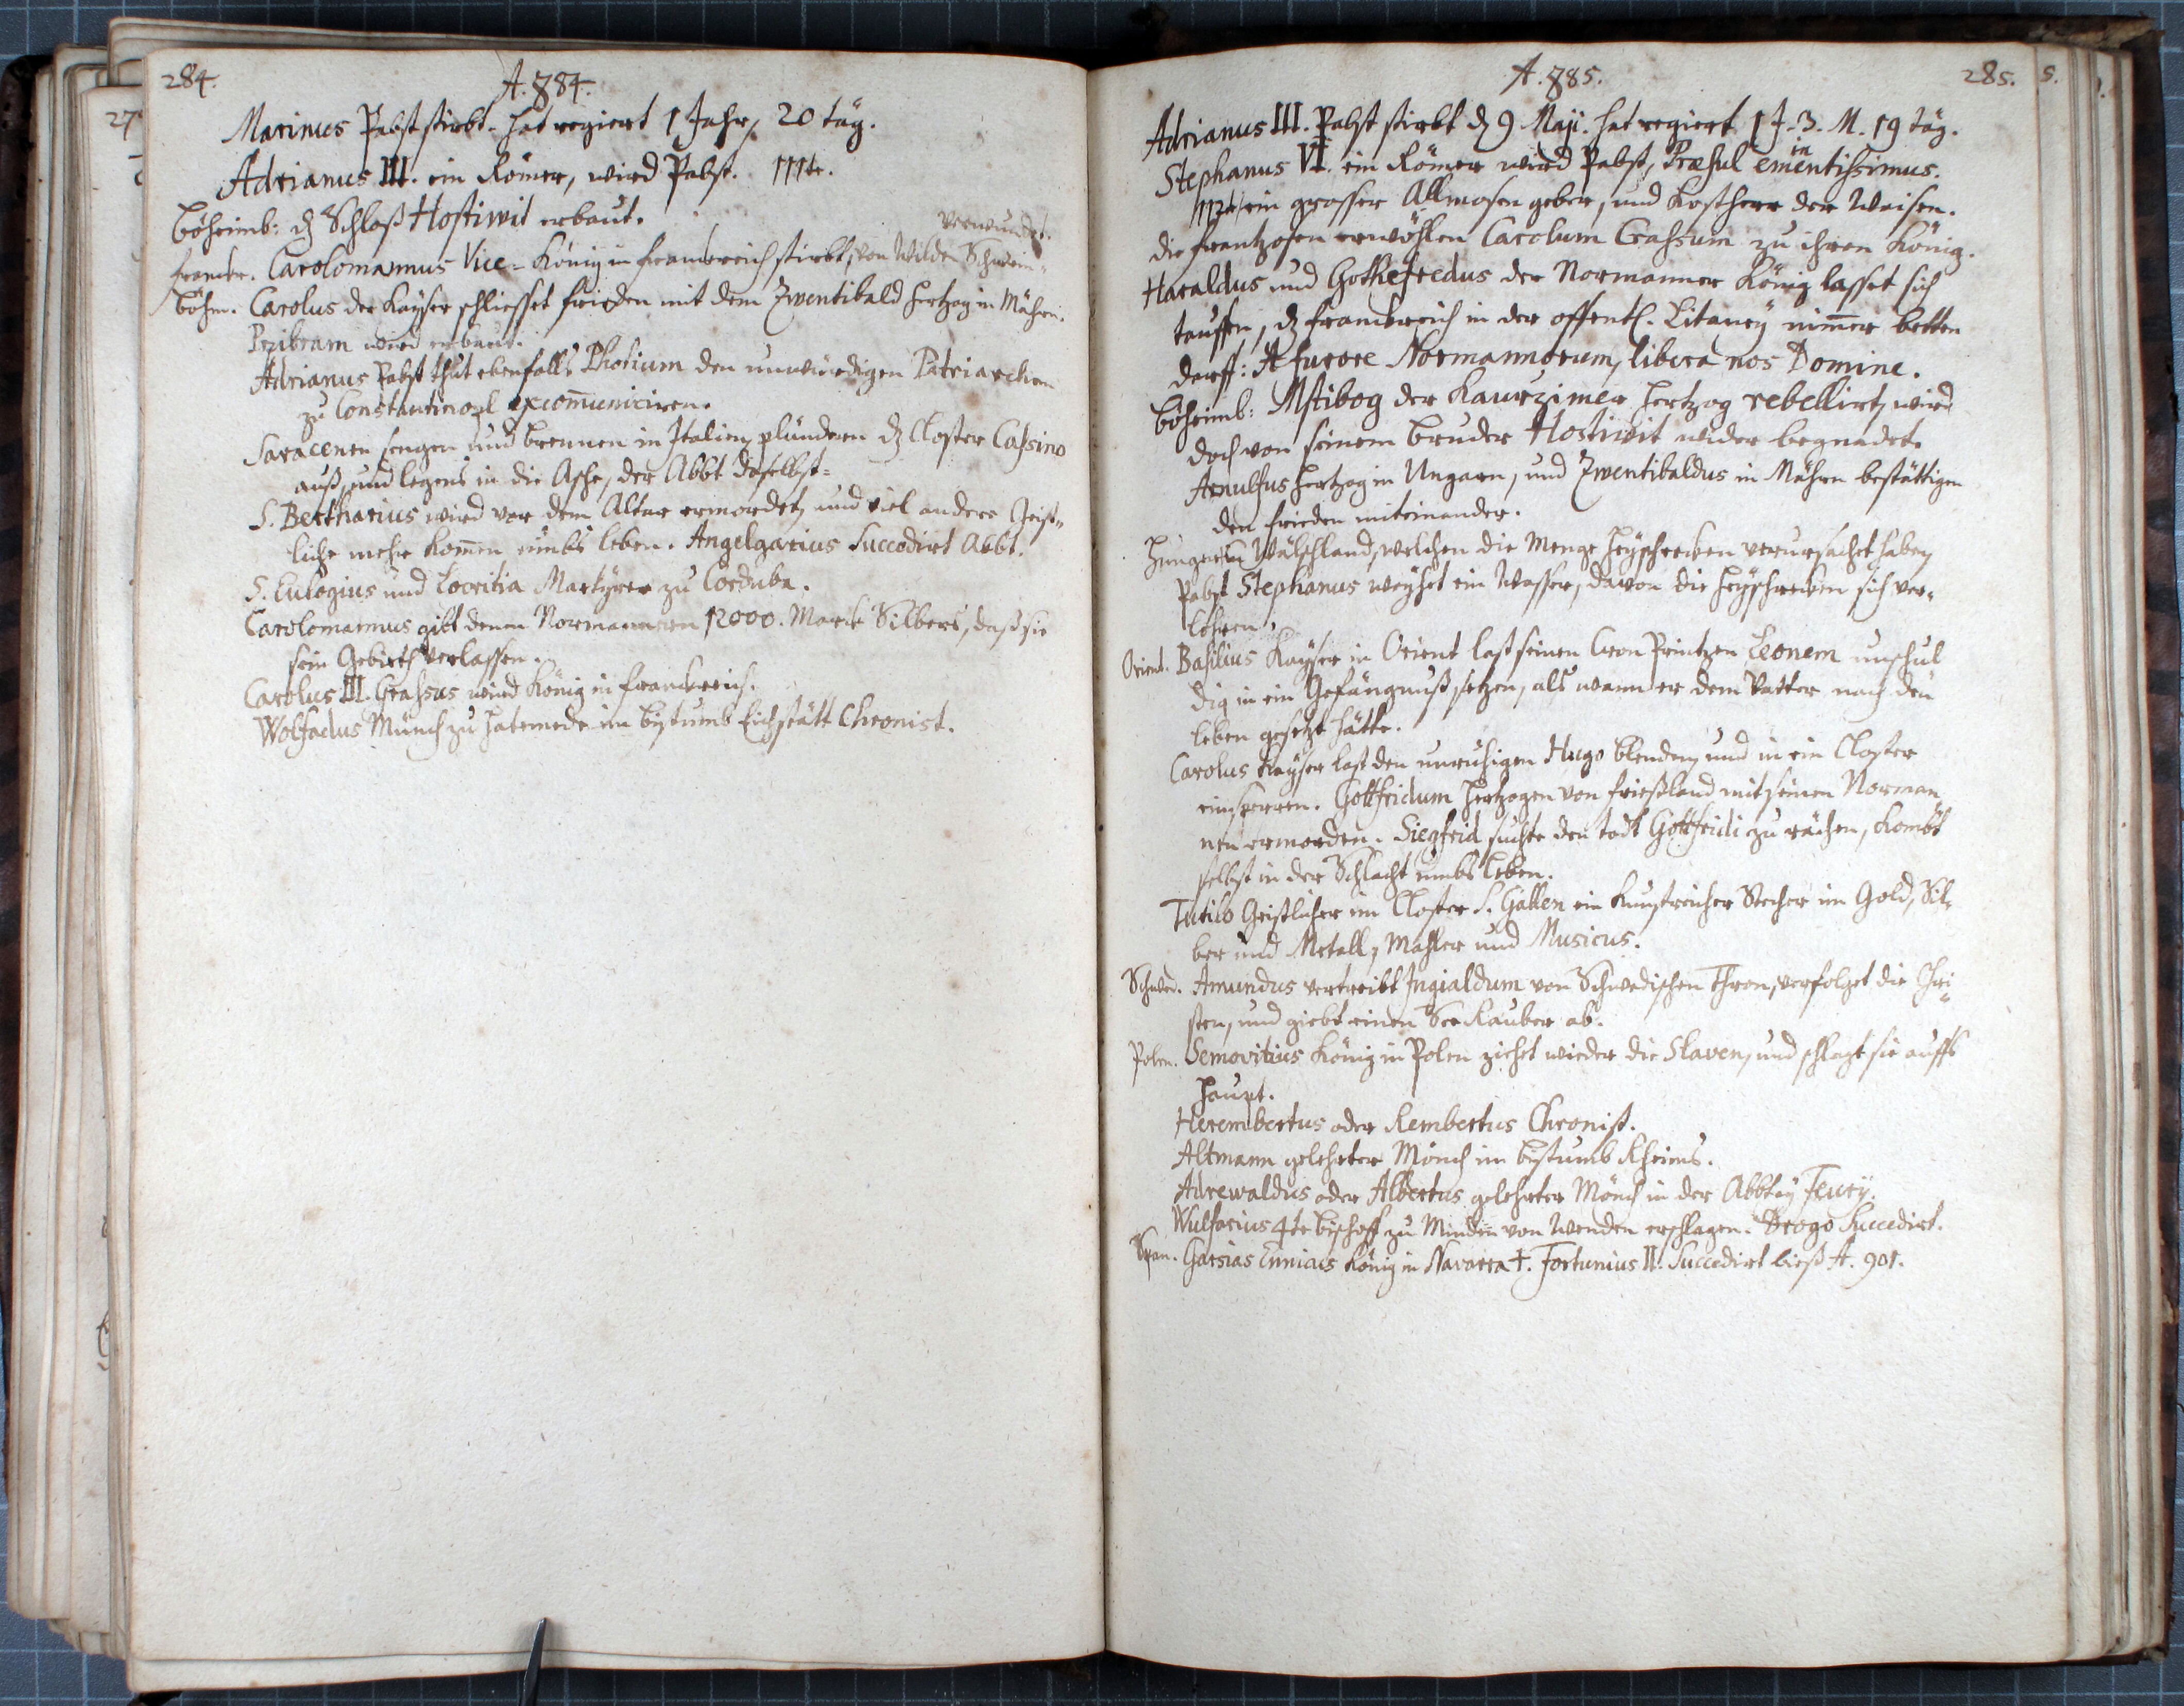 284.
A. 884.
Marinus Pabst stirbt. hat regiert 1 Jahr, 20 täg.
Adrianus III. ein Römer, wird Pabst. 111te.
Böheimb: dz Schloß Hostiwit erbaut.
verwundt.
Franckr. Carolomannus Vice-König in Franckreich stirbt, von Wilden Schwein-
Böhm. Carolus der Kayser schliesset frieden mit dem Zwentibald Hertzog in Mähren.
Przibram wird erbaut.
Adrianus Pabst thut ebenfalls Photium den unwürdigen Patriarchen
zu Constantinopl excom̄uniciren.
Saracenen sengen und brennen in Italien, plündern dz Closter Cassino
auß, und legens in die Asche, der Abbt daselbst-
S. Bertharius wird vor dem Altar ermordet, und viel andere Geist-
liche mehr kom̄en umbs leben. Angelgarius Succedirt Abbt.
S. Eulogius und Locritia Martyrer zu Corduba.
Carolomannus gibt denen Normannern 12000. Marck Silbers, daß sie
sein Gebieth verlassen.
Carolus III. Crassus wird König in Franckreich.
Wolfadus Münch zu Hatemede im Bistumb Eichstätt Chronist.
A. 885.
285.
Adrianus III. Pabst stirbt dz 9 Maji. hat regiert 1 J. 3. M. 19 täg.
Stephanus VI. ein Römer wird Pabst, Præsul eminentissimus.
112te/ ein grosser Allmosen geber, und Kostherr der Waisen.
die Frantzosen erwöhlen Carolum Crassum zu ihren König.
Haraldus und Gothefredus der Normanner König lasset sich
tauffen, dz Franckreich in der offentl. Litaney nim̄er betten
darff: A furore Normannorum, libera nos Domine.
Böheimb: Mstibog der Kaurzimer Hertzog rebellirt, wird
doch von seinem bruder Hostiwit wider begnadet.
Arnulfus Hertzog in Ungarn, und Zwentibaldus in Mähren bestättigen
den frieden miteinander.
Hunger in Wälschland, welchen die Menge Heyschrecken verursachet haben,
Pabst Stephanus weyhet ein Wasser, davon die Heyschrecken sich ver-
lohren.
Orient. Basilius Kayser in Orient last seinen Cron Printzen Leonem unschul
dig in ein Gefängnuß setzen, als wann er dem Vatter nach den
leben gesetzt hätte.
Carolus Kayser last den unruhigen Hugo blenden, und in ein Closter
einsperren. Gottfridum Hertzogen von Frießland mit seinen Norman
nen ermorden. Siegfrid suchte den todt Gottfridi zu rächen, kombt
selbst in der Schlacht umbs leben.
Tutilo Geistlicher im Closter S. Gallen ein kunstreicher Stecher im Gold, Sil-
ber und Metall, Mahler und Musicus.
Schwed. Amundus vertreibt Ingialdum von Schwedischen Thron, verfolget die Chri-
sten, und giebt einen See Rauber ab.
Polen. Semovitius König in Polen ziehet wieder die Slaven, und schlagt sie auffs
Haupt.
Herembertus oder Rembertus Chronist.
Altmann gelehrter Mönch im Bistumb Rheims.
Adrewaldus oder Albertus gelehrter Mönch in der Abbtey Feury.
Wulfarius 4te Bischoff zu Minden von Wenden erschlagen. Drogo Succedirt.
Span. Garsias Enniais König in Navarra †. Fortunius II. Succedirt bieß A. 901.